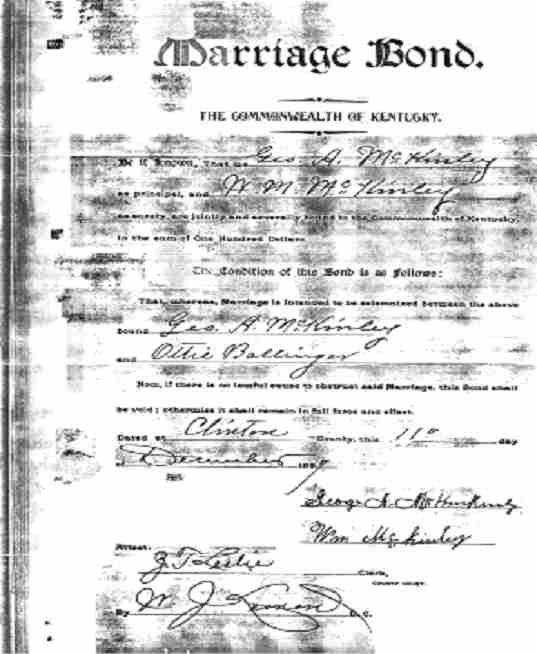 Marriage Bond.
THE COMMONWEALTH OF KENTUCKY.
Be it Known, That we Geo. A. McKinley
as principal, and W. M. McKinley
as surety, are jointly and severally bound to the Commonwealth of Kentucky,
in the sum of One Hundred Dollars.
The Condition of this Bond is as Follows:
That, whereas, Marriage is intended to be solemnized between the above
bound Geo. A. McKinley
and Ottie Ballinger
Now, if there is no lawful cause to obstruct said Marriage, this Bond shall
be void; otherwise it shall remain in full force and effect.
Dated at Clinton County, this 11 day
of December 189
George A.
Wm McKinley
Attest:
Leslie Clerk,
County Court.
By W. J. D. C.